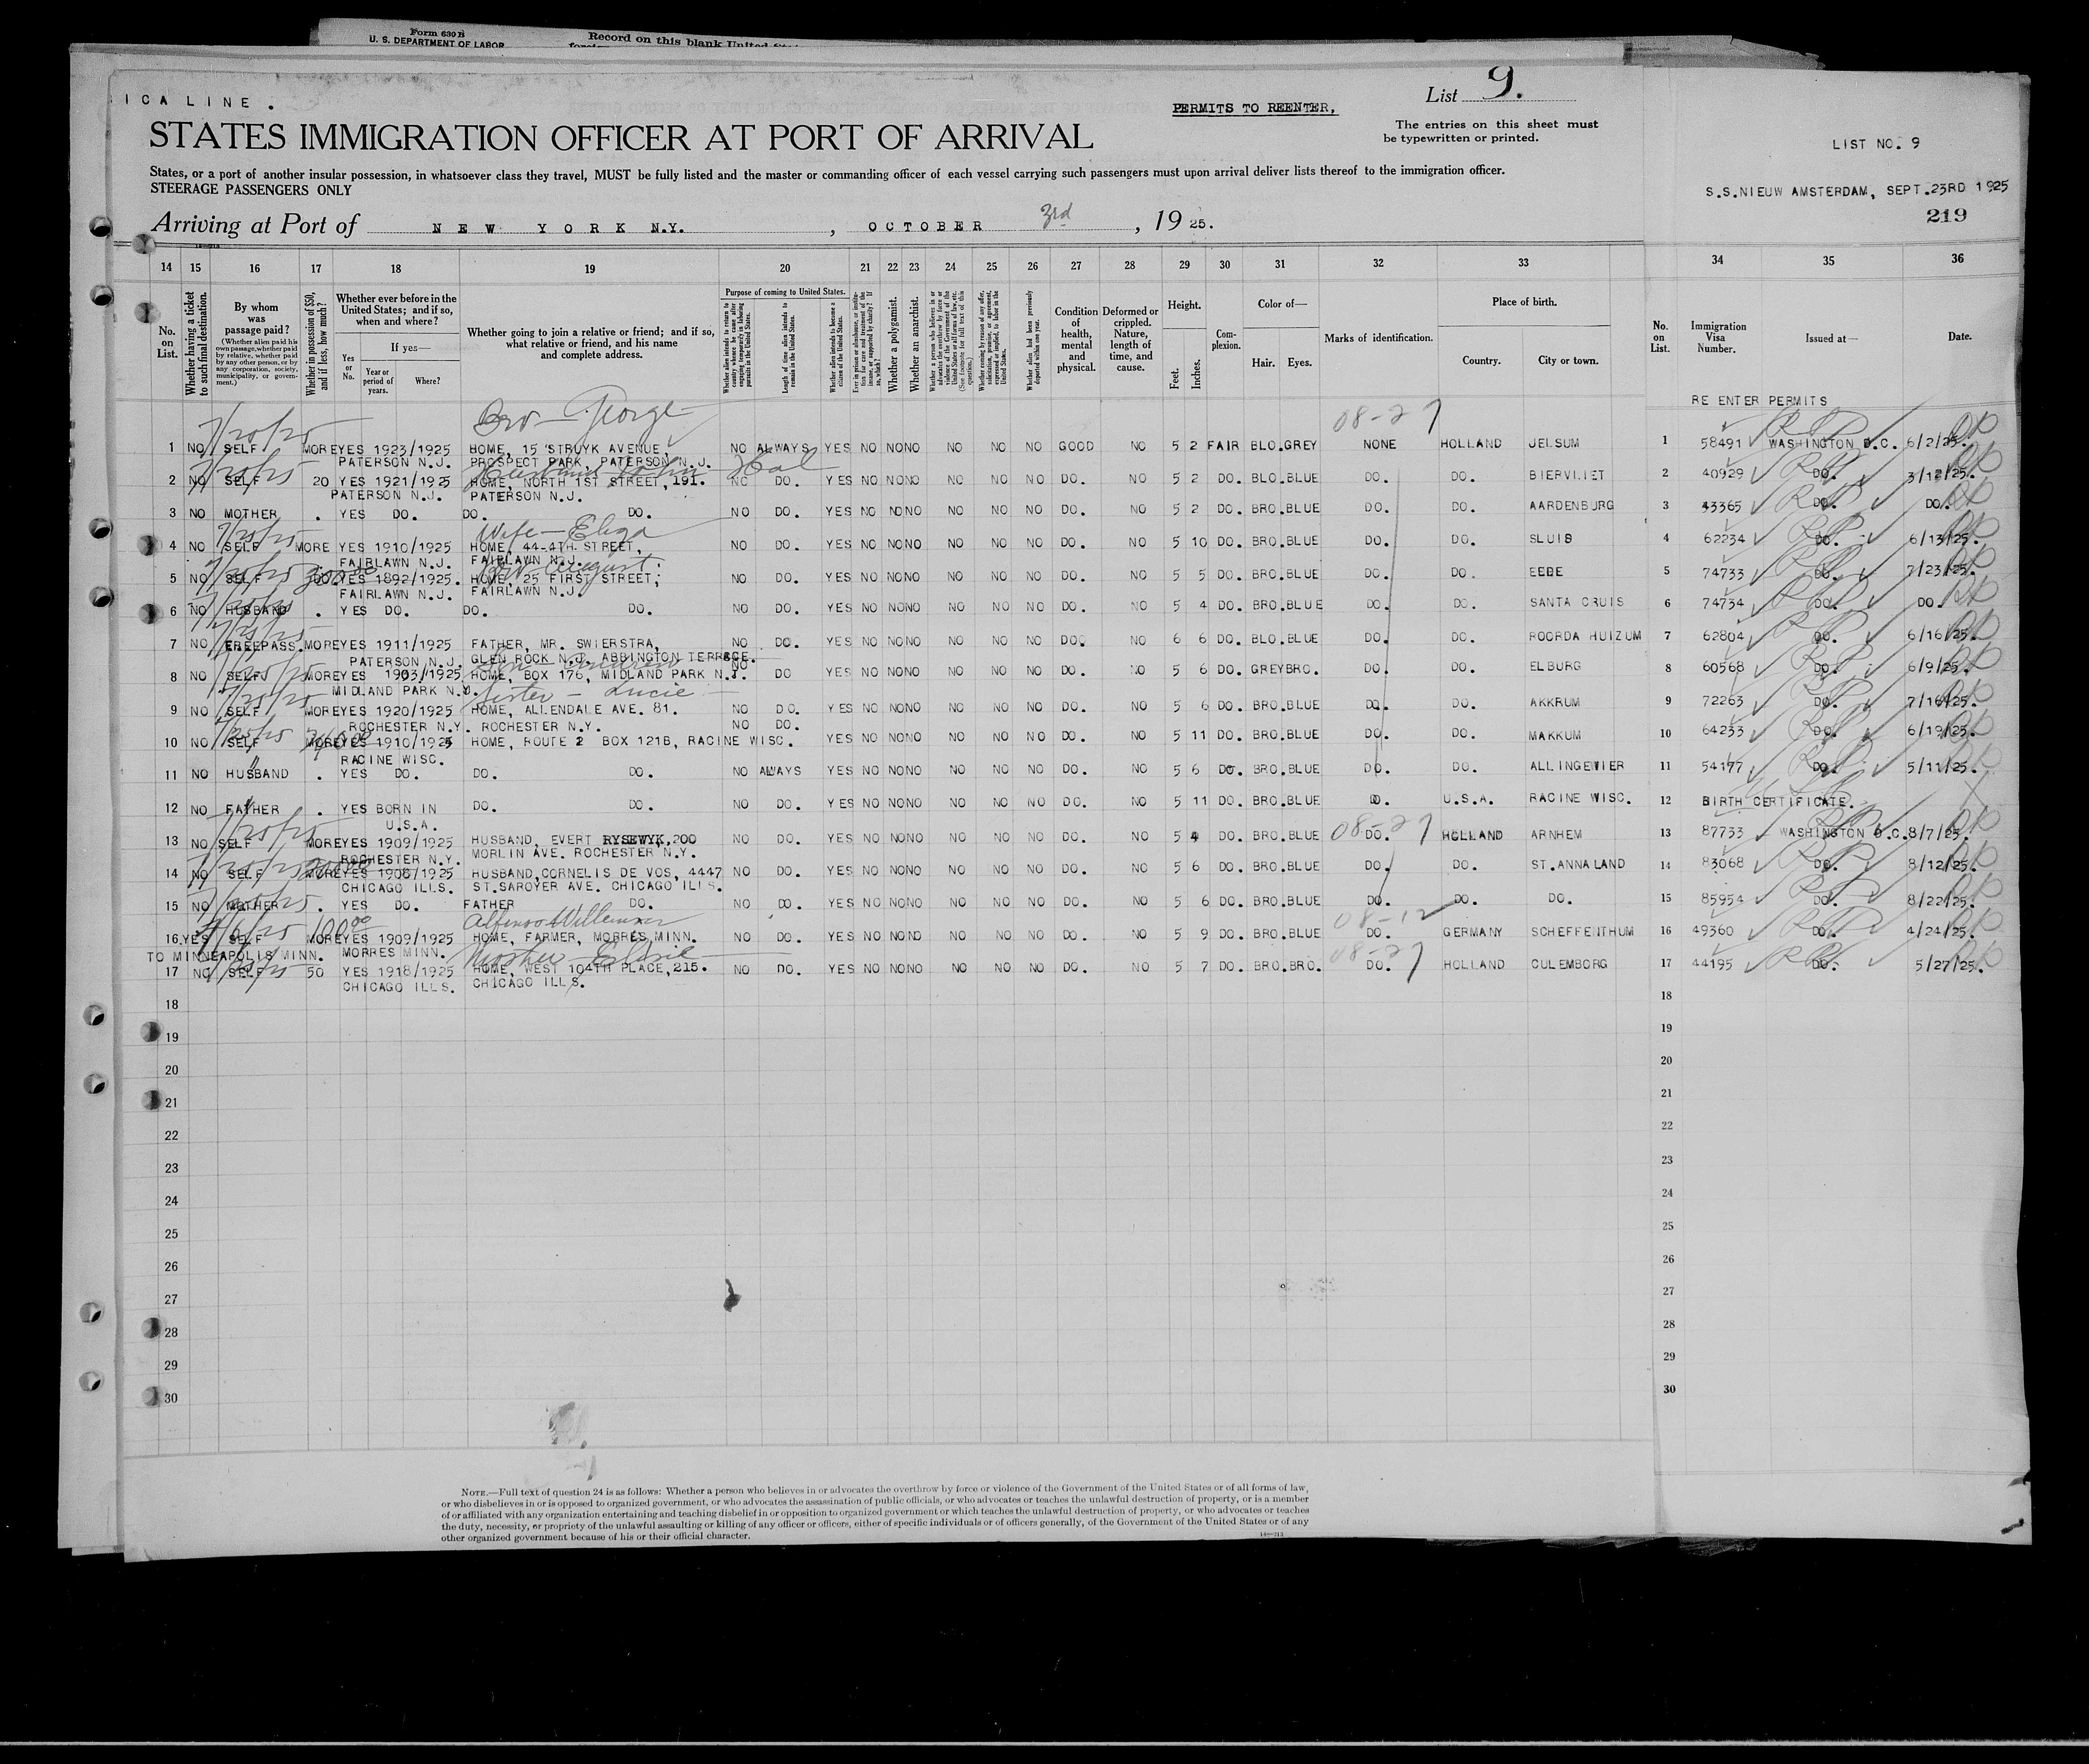 Form 630 B
U. S. DEPARTMENT OF LABOR
Record on this blank United
ICA LINE .
PERMITS TO REENTER,
List 9.
STATES IMMIGRATION OFFICER AT PORT OF ARRIVAL
The entries on this sheet must
be typewritten or printed.
LIST NO. 9
States, or a port of another insular possession, in whatsoever class they travel, MUST be fully listed and the master or commanding officer of each vessel carrying such passengers must upon arrival deliver lists thereof to the immigration officer.
STEERAGE PASSENGERS ONLY
S.S.NIEUW AMSTERDAM, SEPT.23RD 1925
219
Arriving at Port of NEW YORK N.Y. , OCTOBER 3rd , 19 25.
14 15 16 17 18 19 20 21 22 23 24 25 26 27 28 29 30 31 32 33 34 35 36
No. on List.
Whether having a ticket to such final destination.
By whom was passage paid?
(Whether alien paid his own passage, whether paid by relative, whether paid by any other person, or by any corporation, society, municipality, or government.)
Whether in possession of $50, and if less, how much?
Whether ever before in the United States; and if so, when and where?
If yes—
Yes or No.
Year or period of years.
Where?
Whether going to join a relative or friend; and if so, what relative or friend, and his name and complete address.
Purpose of coming to United States.
Whether alien intends to return to country whence he came after engaging temporarily in laboring pursuits in the United States.
Length of time alien intends to remain in the United States.
Whether alien intends to become a citizen of the United States.
Whether a polygamist.
Whether an anarchist.
Condition of health, mental and physical.
Deformed or crippled. Nature, length of time, and cause.
Height.
Feet.
Inches.
Complexion.
Color of—
Hair. Eyes.
Marks of identification.
Place of birth.
Country.
City or town.
No. on List.
Immigration Visa Number.
Issued at—
Date.
RE ENTER PERMITS
Bro - George
08-27
1 NO SELF MORE YES 1923/1925 HOME, 15 STRUYK AVENUE, NO ALWAYS YES NO NO NO NO NO NO GOOD NO 5 2 FAIR BLO.GREY NONE HOLLAND JELSUM 1 58491 WASHINGTON D.C. 6/2/25.
PATERSON N.J. PROSPECT PARK, PATERSON N.J.
2 NO SELF 20 YES 1921/1925 HOME, NORTH 1ST STREET, 191. NO DO. YES NO NO NO NO NO NO DO. NO 5 2 DO. BLO.BLUE DO. DO. BIERVLIET 2 40929 DO. 3/12/25.
PATERSON N.J. PATERSON N.J.
3 NO MOTHER . YES DO. DO. DO. NO DO. YES NO NO NO NO NO NO DO. NO 5 2 DO. BRO.BLUE DO. DO. AARDENBURG 3 43365 DO. DO.
Wife - Eliza
4 NO SELF MORE YES 1910/1925 HOME, 44-4TH STREET, NO DO. YES NO NO NO NO NO NO DO. NO 5 10 DO. BRO.BLUE DO. DO. SLUIS 4 62234 DO. 6/13/25.
FAIRLAWN N.J. FAIRLAWN N.J.
Bro August
5 NO SELF YES 1892/1925. HOME, 25 FIRST STREET, NO DO. YES NO NO NO NO NO NO DO. NO 5 5 DO. BRO.BLUE DO. DO. EEDE 5 74733 DO. 7/23/25.
FAIRLAWN N.J. FAIRLAWN N.J.
6 NO HUSBAND . YES DO. DO. DO. NO DO. YES NO NO NO NO NO NO DO. NO 5 4 DO. BRO.BLUE DO. DO. SANTA CRUIS 6 74734 DO. DO.
7 NO FREEPASS. MORE YES 1911/1925 FATHER, MR. SWIERSTRA, NO DO. YES NO NO NO NO NO NO DO. NO 6 6 DO. BLO.BLUE DO. DO. ROORDA HUIZUM 7 62804 DO. 6/16/25.
PATERSON N.J. GLEN ROCK N.J. ABBINGTON TERRACE.
8 NO SELF MORE YES 1903/1925 HOME, BOX 176, MIDLAND PARK N.J. NO DO YES NO NO NO NO NO NO DO. NO 5 6 DO. GREY BRO. DO. DO. ELBURG 8 60568 DO. 6/9/25.
MIDLAND PARK N.J.
Sister - Lucie
9 NO SELF MORE YES 1920/1925 HOME, ALLENDALE AVE. 81. NO DO. YES NO NO NO NO NO NO DO. NO 5 6 DO. BRO.BLUE DO. DO. AKKRUM 9 72263 DO. 7/16/25.
ROCHESTER N.Y. ROCHESTER N.Y. NO DO.
10 NO SELF MORE YES 1910/1925 HOME, ROUTE 2 BOX 121B, RACINE WISC. YES NO NO NO NO NO NO DO. NO 5 11 DO. BRO.BLUE DO. DO. MAKKUM 10 64233 DO. 6/19/25.
RACINE WISC.
11 NO HUSBAND . YES DO. DO. DO. NO ALWAYS YES NO NO NO NO NO NO DO. NO 5 6 DO. BRO.BLUE DO. DO. ALLINGEWIER 11 54177 DO. 5/11/25.
12 NO FATHER . YES BORN IN DO. DO. NO DO. YES NO NO NO NO NO NO DO. NO 5 11 DO. BRO.BLUE D. U.S.A. RACINE WISC. 12 BIRTH CERTIFICATE.
U.S.A.
08-27
13 NO SELF MORE YES 1909/1925 HUSBAND, EVERT RYSEWYK, 200 NO DO. YES NO NO NO NO NO NO DO. NO 5 4 DO. BRO.BLUE DO. HOLLAND ARNHEM 13 87733 WASHINGTON D.C. 8/7/25.
ROCHESTER N.Y. MORLIN AVE. ROCHESTER N.Y.
14 NO SELF MORE YES 1908/1925 HUSBAND,CORNELIS DE VOS, 4447 NO DO. YES NO NO NO NO NO NO DO. NO 5 6 DO. BRO.BLUE DO. DO. ST.ANNALAND 14 83068 DO. 8/12/25.
CHICAGO ILLS. ST.SAROYER AVE. CHICAGO ILLS.
15 NO MOTHER . YES DO. FATHER DO. NO DO. YES NO NO NO NO NO NO DO. NO 5 6 DO. BRO.BLUE DO. DO. DO. 15 85954 DO. 8/22/25.
08-12
16 YES SELF MORE YES 1909/1925 HOME, FARMER, MORRES MINN. NO DO. YES NO NO NO NO NO NO DO. NO 5 9 DO. BRO.BLUE DO. GERMANY SCHEFFENTHUM 16 49360 DO. 4/24/25.
TO MINNEAPOLIS MINN. MORRES MINN.
08-27
17 NO SELF 50 YES 1918/1925 HOME, WEST 104TH PLACE, 215. NO DO. YES NO NO NO NO NO NO DO. NO 5 7 DO. BRO.BRO. DO. HOLLAND CULEMBORG 17 44195 DO. 5/27/25.
CHICAGO ILLS. CHICAGO ILLS.
18 18
19 19
20 20
21 21
22 22
23 23
24 24
25 25
26 26
27 27
28 28
29 29
30 30
NOTE.—Full text of question 24 is as follows: Whether a person who believes in or advocates the overthrow by force or violence of the Government of the United States or of all forms of law,
or who disbelieves in or is opposed to organized government, or who advocates the assassination of public officials, or who advocates or teaches the unlawful destruction of property, or is a member
of or affiliated with any organization entertaining and teaching disbelief in or opposition to organized government or which teaches the unlawful destruction of property, or who advocates or teaches
the duty, necessity, or propriety of the unlawful assaulting or killing of any officer or officers, either of specific individuals or of officers generally, of the Government of the United States or of any
other organized government because of his or their official character.